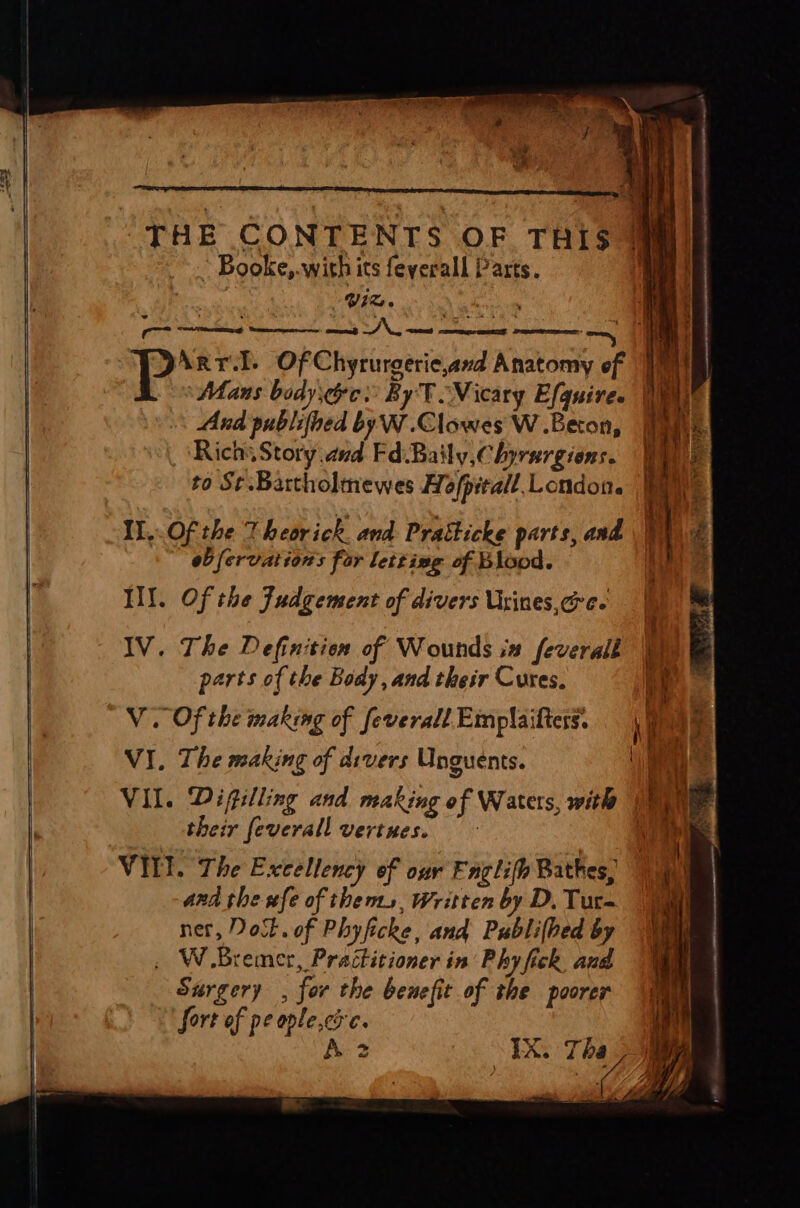 THE CONTENTS OF THIS
Booke, with its ſeverall Parts.
Viz.
PART.I. Of Chyrurgerie, and Anatomy of
Mans body, &c. By T. Vicary Eſquire.
And publiſhed by W. Clowes W. Beton,
Rich. Story and Ed. Baily, Chyrurgions.
to St. Bartholmewes Hoſpitall. London.
II. Of the Theorick and Practicke parts, and
obſervations for letting of Blood.
III. Of the Judgement of divers Urines, &c.
IV. The Definition of Wounds in ſeverall
parts of the Body, and their Cures.
V. Of the making of ſeverall Emplaiſters.
VI. The making of divers Unguents.
VII. Diſtilling and making of Waters, with
their ſeverall vertues.
VIII. The Excellency of our Engliſh Bathes,
and the uſe of them, Written by D. Tur-
ner, Doct. of Phyſicke, and Publiſhed by
W. Bremer, Practitioner in Phyſick and
Surgery, for the benefit of the poorer
ſort of people, &c.
A 2 IX. The